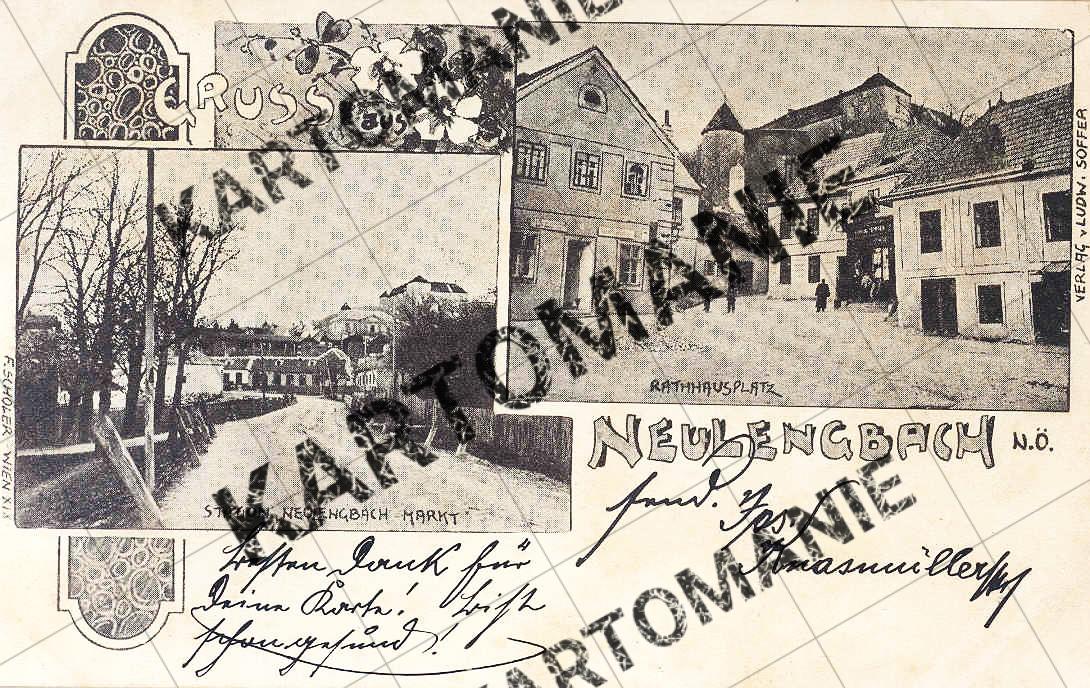 GRUSS
aus
VERLAG v LUDW. SOFFER
RATHHAUSPLATZ
NEULENGBACH N.Ö.
F. SCHOLER WIEN XIX
STATION NEULENGBACH MARKT
Besten Dank für
Deine Karte! Bist
schon gesund!
send.
KARTOMANIE
KARTOMANIE
KARTOMANIE
KARTOMANIE